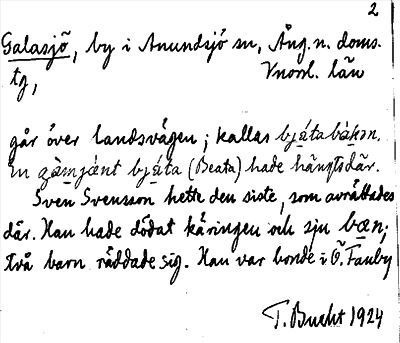 2
Galasjö, by i Anundsjö sn, Ång. n. doms.
tg, Vnorrl. län
går över landsvägen; kallas bjáta bákan.
En gàmjænt bjáta (Beata) hade hängts där.
Sven Svensson hette den siste, som avrättades
där. Han hade dödat käringen och sju bæn;
två barn räddade sig. Han var bonde i Ö. Tanby
T. Bucht 1924